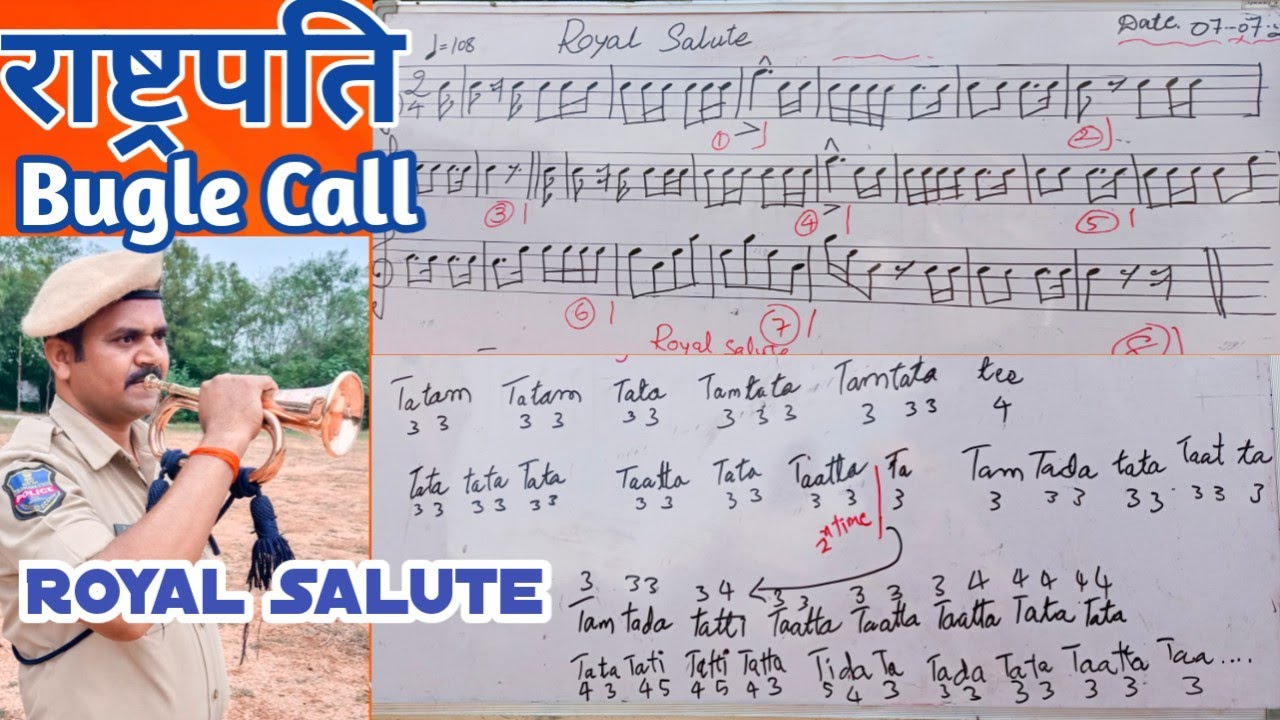 राष्ट्रपति
Bugle Call
POLICE
ROYAL SALUTE
♩=108 Royal Salute Date. 07-07-2
2
4
① 1 ② 1
③ 1 ④ 1 ⑤ 1
⑥ 1 ⑦ 1
Royal Salute
Tatam Tatam Tata Tamtata Tamtata tee
3 3 3 3 3 3 3 3 3 3 3 3 4
Tata tata Tata Taatta Tata Taatta Ta Tam Tada tata Taat ta
3 3 3 3 3 3 3 3 3 3 3 3 3 3 3 3 3 3 3 3 3
2nd time
3 33 34 3 3 3 3 3 4 4 4 4 4
Tam Tada tatti Taatta Taatta Taatta Tata Tata
Tata Tati Tatti Tatta Tida Ta Tada Tata Taatta Taa....
4 3 4 5 4 5 4 3 5 4 3 3 3 3 3 3 3 3